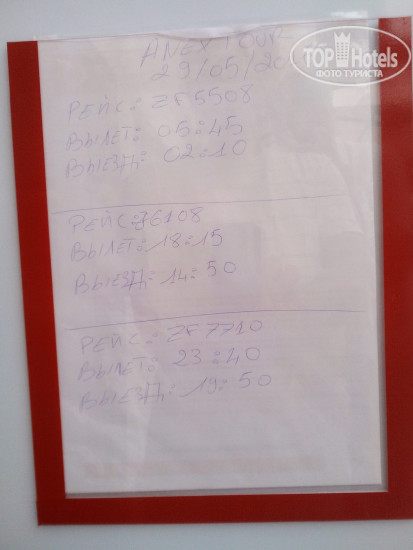 TOP Hotels
ФОТО ТУРИСТА
ANEX TOUR
29/05/20
РЕЙС: ZF5508
ВЫЛЕТ: 05:45
ВЫЕЗД: 02:10
РЕЙС: 6108
ВЫЛЕТ: 18:15
ВЫЕЗД: 14:50
РЕЙС: ZF7710
ВЫЛЕТ: 23:40
ВЫЕЗД: 19:50